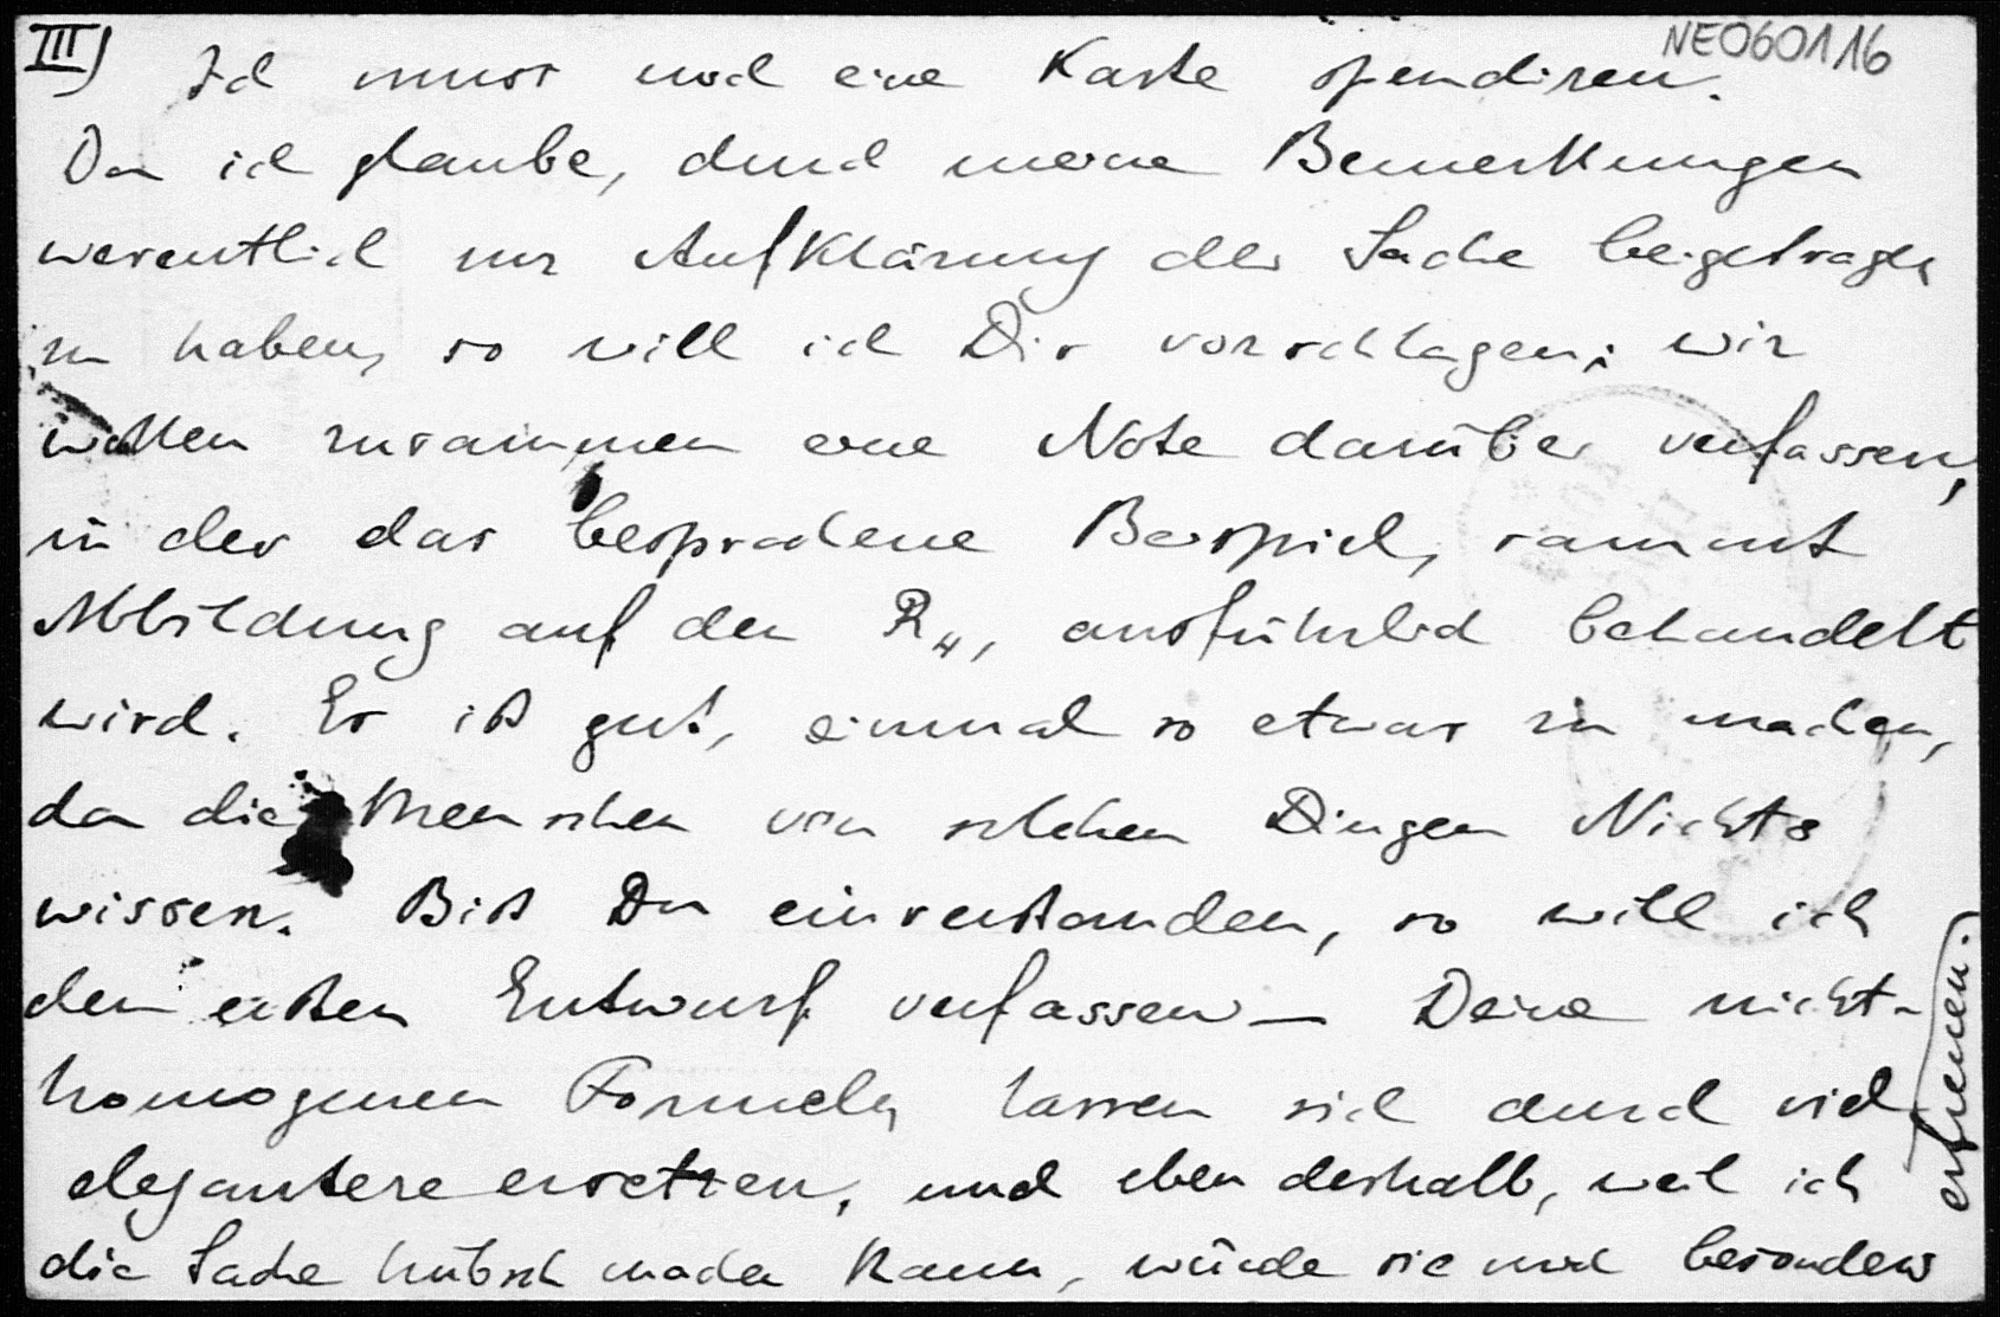 III) Ich muss noch eine Karte spendiren.
NE060116
Da ich glaube, durch meine Bemerkungen
wesentlich zur Aufklärung der Sache beigetragen
zu haben, so will ich Dir vorschlagen; wir
wollen zusammen eine Note darüber verfassen,
in der das besprochene Beispiel, sammt
Abbildung auf den R₄, ausführlich behandelt
wird. Es ist gut, einmal so etwas zu machen,
da die Menschen von solchen Dingen Nichts
wissen. Bist Du einverstanden, so will ich
den ersten Entwurf verfassen — Deine nicht-
homogenen Formeln lassen sich durch viel
elegantere ersetzen, und eben deshalb, weil ich
die Sache hübsch machen kann, würde sie mich besonders
erfreuen.